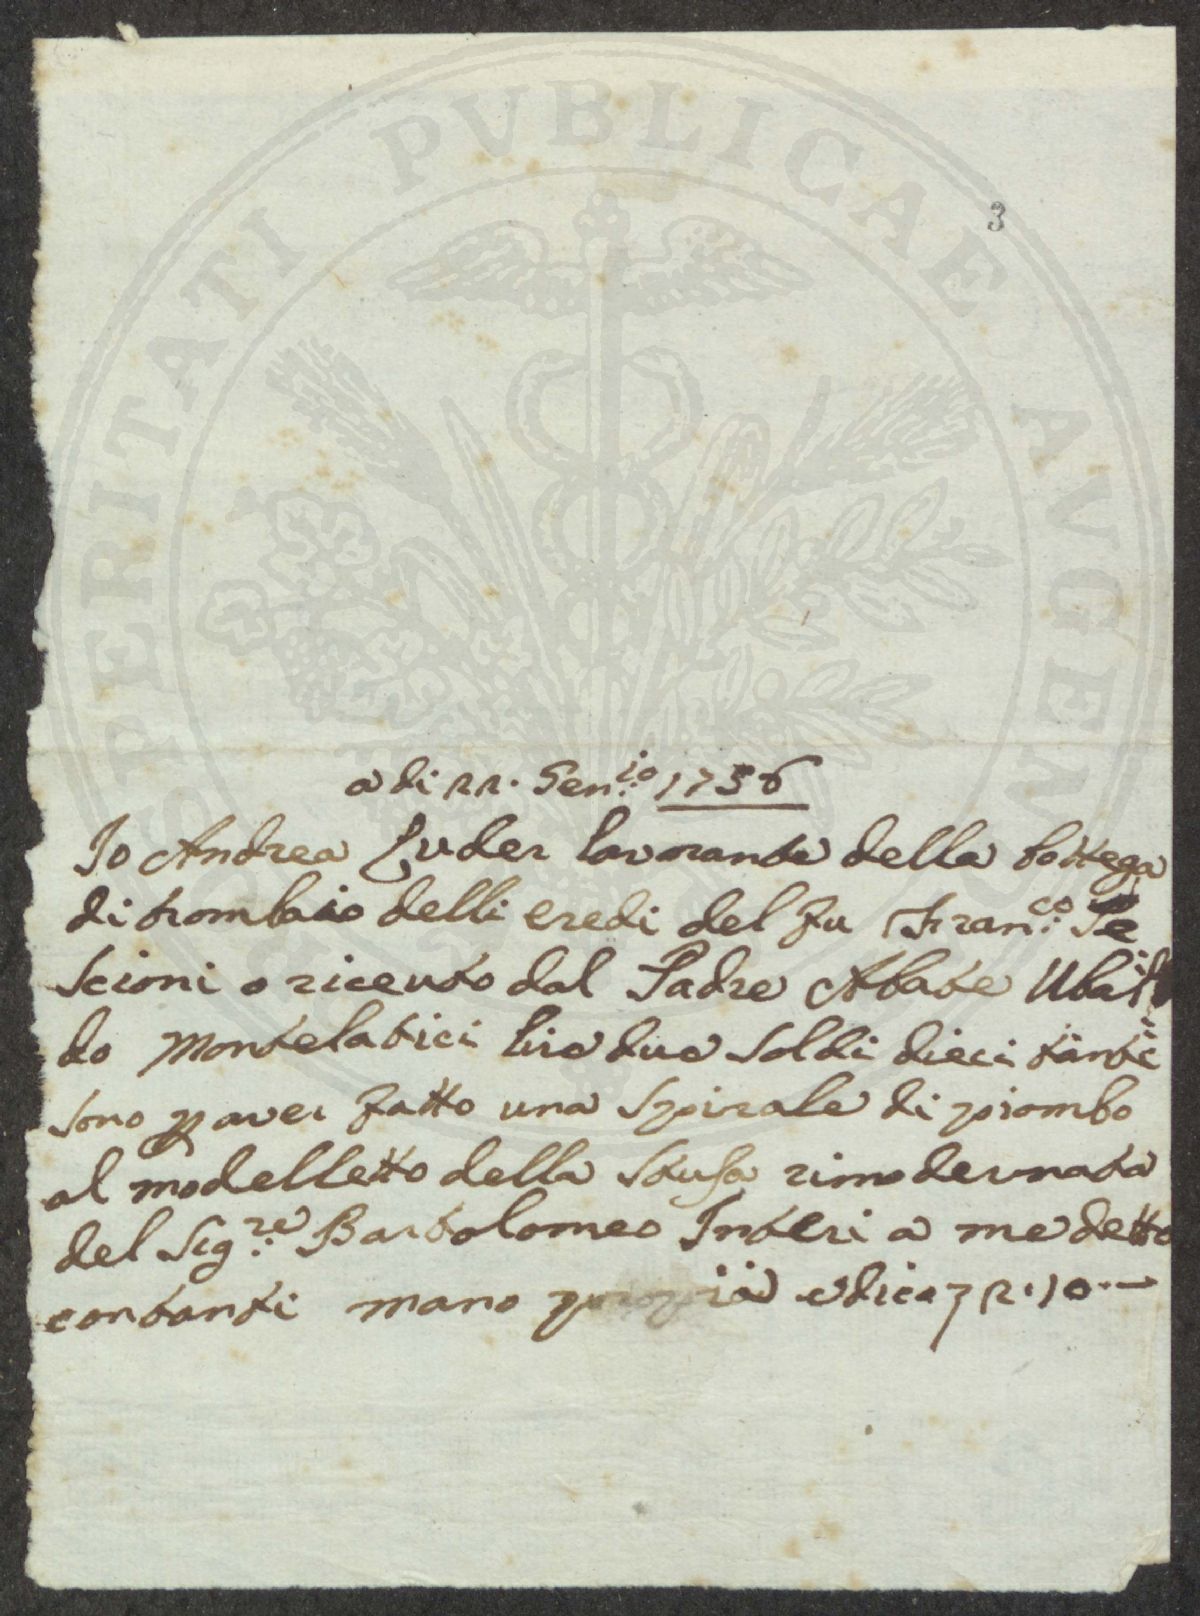 PROSPERITATI PVBLICAE AVGENDAE
3
a di 22. Gen.io 1756
Io Andrea Luder lavorante della bottega
di trombaio delli eredi del fu Fran.co Pe
scioni o riceuto dal Padre Abate Ubal
do Montelatici lire due soldi dieci tanti
sono p aver fatto una spirale di piombo
al modelletto della stufa rimodernata
del Sig.re Bartolomeo Interi a me detto
contanti mano propria e dico 2.10.—